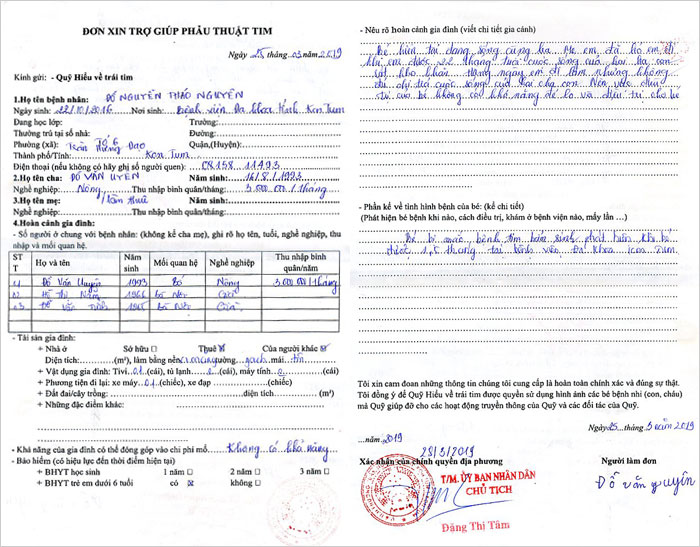 ĐƠN XIN TRỢ GIÚP PHẪU THUẬT TIM
Ngày 25 tháng 03 năm 2019
Kính gửi: - Quỹ Hiểu về trái tim
1.Họ tên bệnh nhân: ĐỖ NGUYÊN THẢO NGUYÊN
Ngày sinh: 22/10/2016 Nơi sinh: Bệnh viện Đa khoa tỉnh Kon Tum
Đang học lớp: Trường:
Thường trú tại số nhà: Đường:
Phường (xã): Trần Hưng Đạo Tổ 6 Quận,(Huyện):
Thành phố/Tỉnh: Kon Tum
Điện thoại (nếu không có hãy ghi số người quen): 08158 11493
2.Họ tên cha: ĐỖ VĂN UYÊN Năm sinh: 16/8/1993
Nghề nghiệp: Nông Thu nhập bình quân/tháng: 3 000 000 / tháng
3.Họ tên mẹ: / làm thuê Năm sinh:
Nghề nghiệp: Thu nhập bình quân/tháng:
4.Hoàn cảnh gia đình:
- Số người ở chung với bệnh nhân: (không kể cha mẹ), ghi rõ họ tên, tuổi, nghề nghiệp, thu
nhập và mối quan hệ.
STT Họ và tên Năm sinh Mối quan hệ Nghề nghiệp Thu nhập bình quân/năm
1 Đỗ Văn Uyên 1993 Bố Nông 3 000 000 / tháng
2 Thị 1966
3 Đỗ Văn
- Tài sản gia đình:
+ Nhà ở Sở hữu Thuê Của người khác
Diện tích: (m²), làm bằng nền tường gạch mái tôn
+ Vật dụng gia đình: Tivi 01 (cái), tủ lạnh (cái), máy tính (cái)
+ Phương tiện đi lại: xe máy 01 (chiếc), xe đạp (chiếc)
+ Đất đai/cây trồng: diện tích (m²)
+ Những đặc điểm khác:
- Khả năng của gia đình có thể đóng góp vào chi phí mổ: Không có khả năng
- Bảo hiểm (có hiệu lực đến thời điểm hiện tại)
+ BHYT học sinh 1 năm 2 năm 3 năm
+ BHYT trẻ em dưới 6 tuổi có không
- Nêu rõ hoàn cảnh gia đình (viết chi tiết gia cảnh)
Bé hiện tại đang sống cùng ba. Mẹ em đã bỏ em đi
khi em được 22 tháng tuổi cuộc sống của hai ba con
rất khó khăn. Hàng ngày em đi làm nhưng không
đủ cuộc sống của hai cha con. Nên việc điều
trị của bé không có khả năng để lo và điều trị cho bé
- Phần kể về tình hình bệnh của bé: (kể chi tiết)
(Phát hiện bé bệnh khi nào, cách điều trị, khám ở bệnh viện nào, mấy lần …)
Bé bị mắc bệnh tim bẩm sinh phát hiện khi bé
được 1,5 tháng tại bệnh viện Đa khoa Kon Tum.
Tôi xin cam đoan những thông tin chúng tôi cung cấp là hoàn toàn chính xác và đúng sự thật.
Tôi đồng ý để Quỹ Hiểu về trái tim được quyền sử dụng hình ảnh các bé bệnh nhi (con, cháu)
mà Quỹ giúp đỡ cho các hoạt động truyền thông của Quỹ và các đối tác của Quỹ.
Ngày 25 3 năm 2019
..năm 2019
25/3/2019
Xác nhận của chính quyền địa phương Người làm đơn
T/M. ỦY BAN NHÂN DÂN
CHỦ TỊCH
Đỗ Văn Uyên
Đặng Thị Tâm